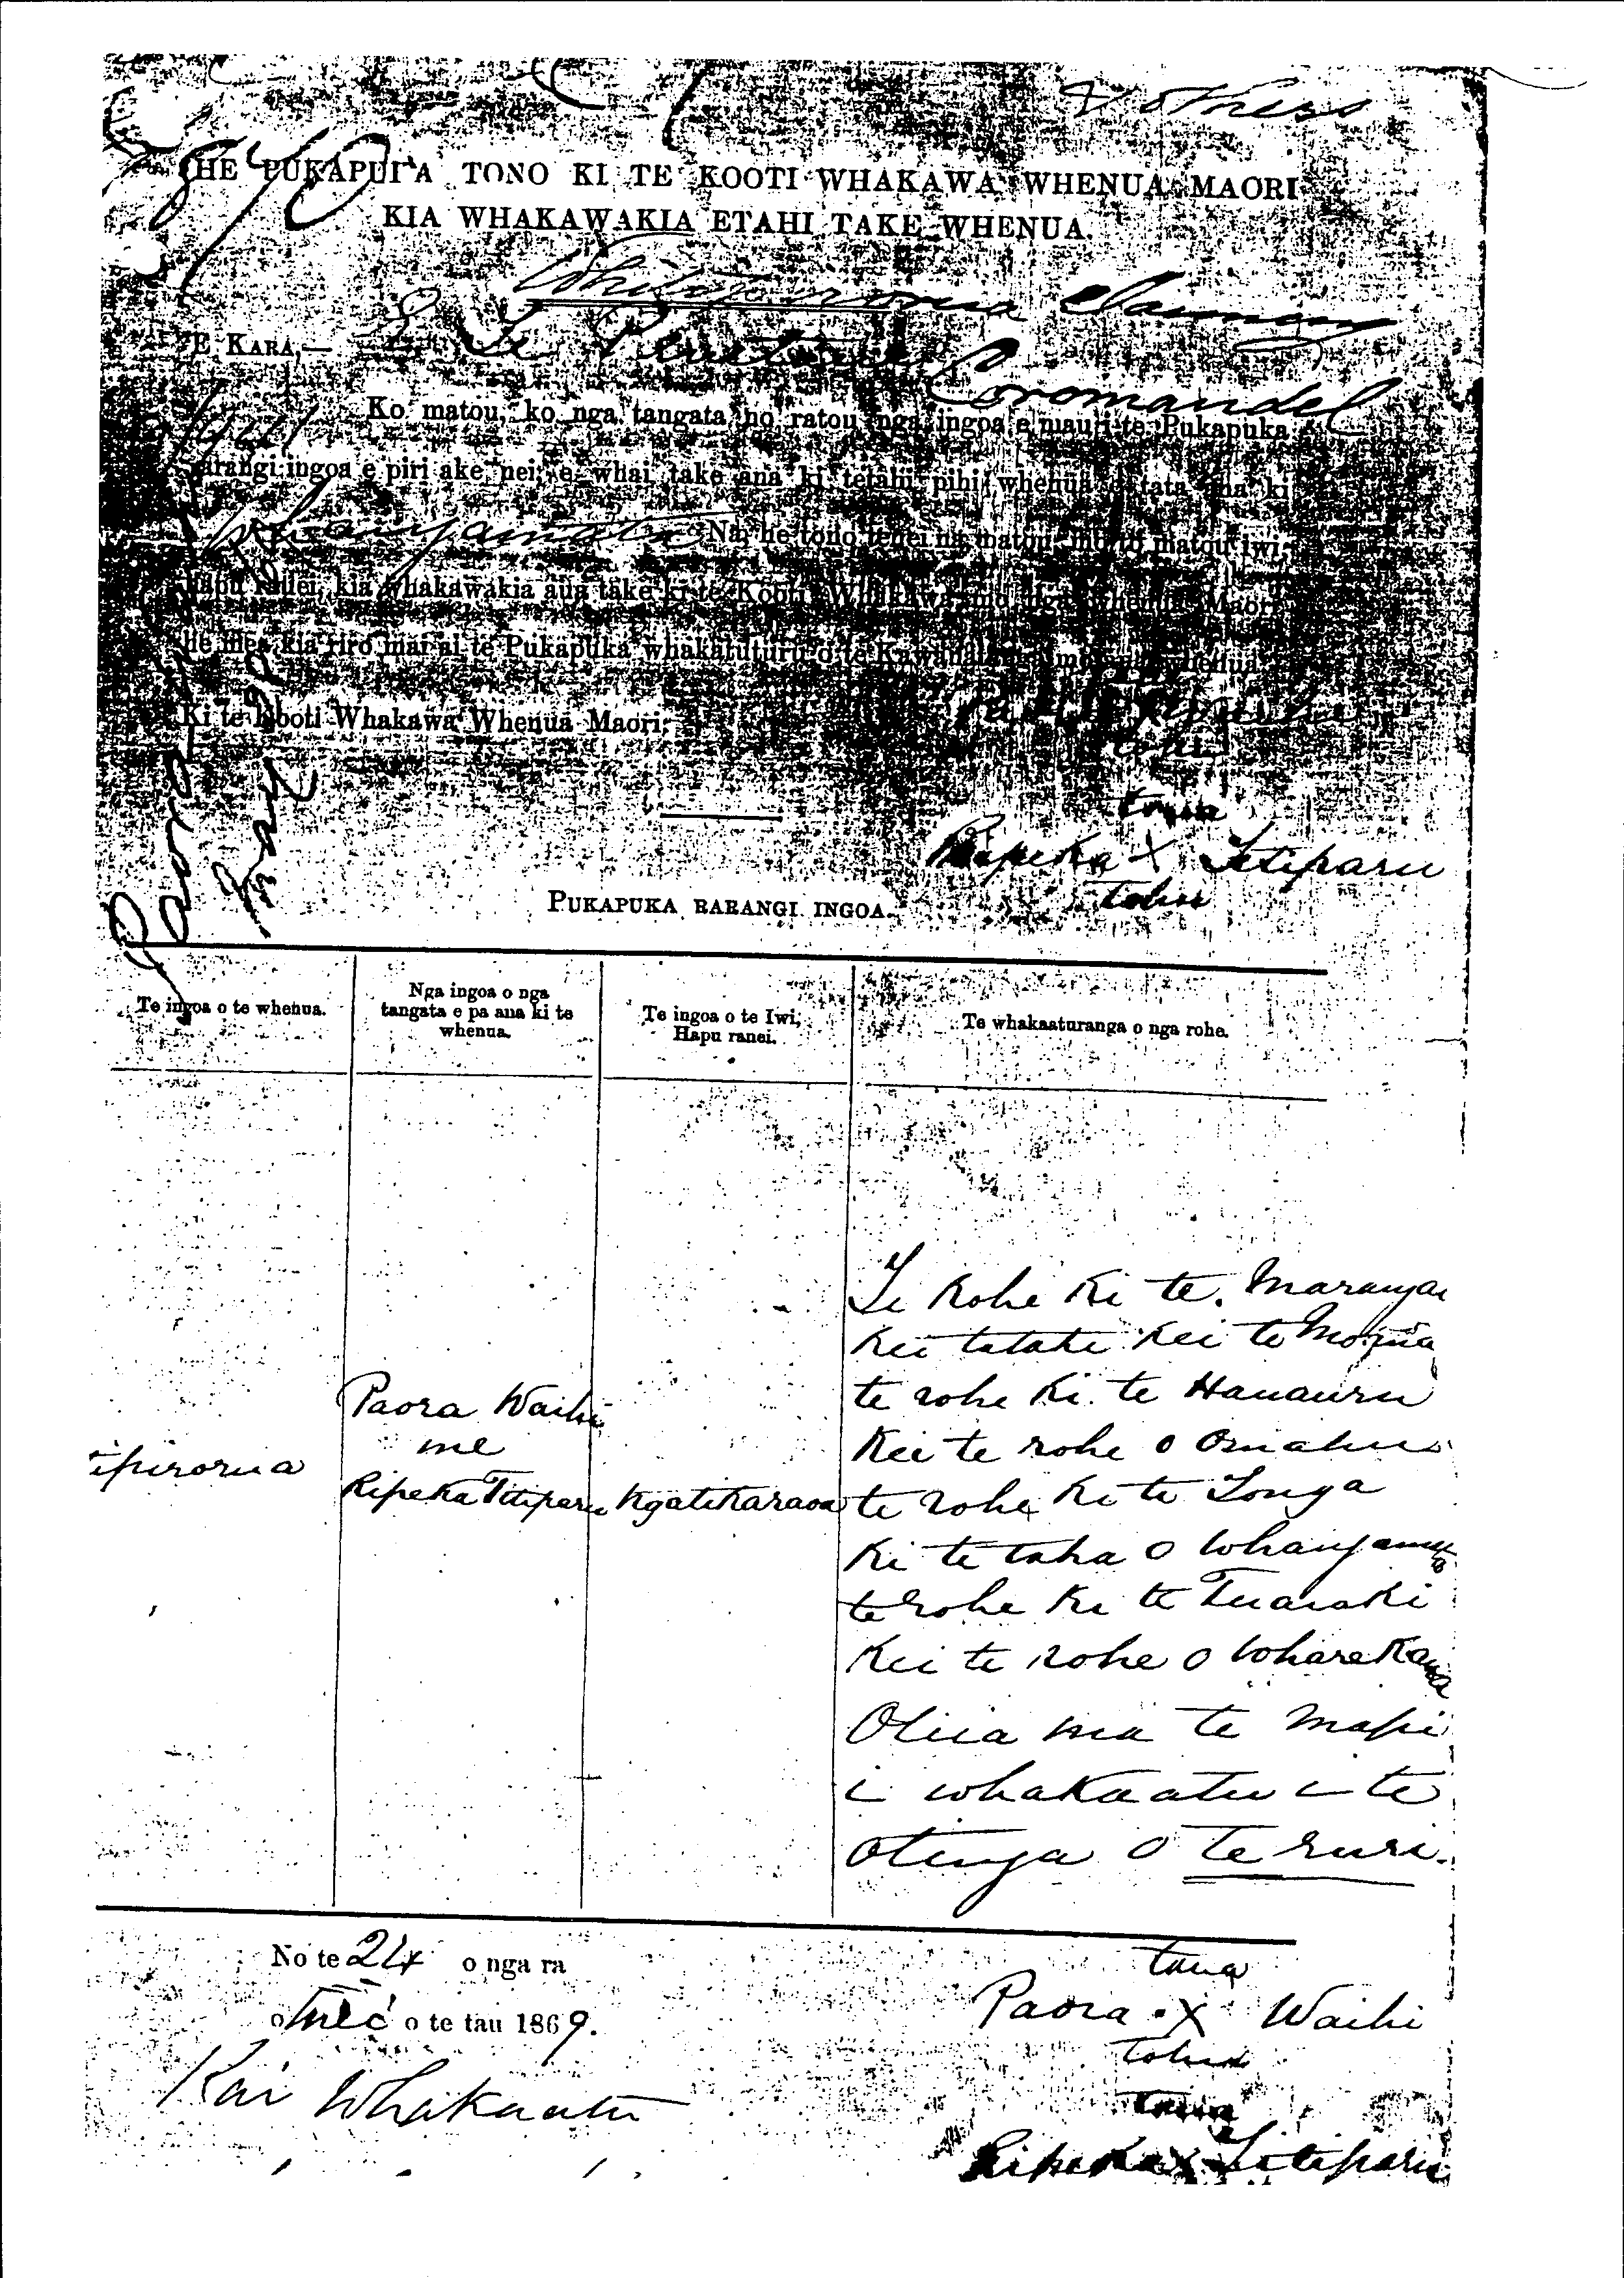 & others
870
HE PUKAPUKA TONO KI TE KOOTI WHAKAWA WHENUA MAORI
KIA WHAKAWAKIA ETAHI TAKE WHENUA.
E KARA,—
Coromandel
Ko matou, ko nga tangata no ratou nga ingoa e mau i te Pukapuka
rarangi ingoa e piri ake nei, e whai take ana ki tetahi pihi whenua e tata ana ki
Whangamata Na, he tono tenei na matou mo to matou iwi,
hapu ranei, kia whakawakia aua take ki te Kooti Whakawa mo nga whenua Maori
he mea kia riro mai ai te Pukapuka whakatuturu o te Kawanatanga mo taua whenua.
Ki te Kooti Whakawa Whenua Maori.
tohu
tona
Ripeka X Titiparu
tohu
PUKAPUKA RARANGI INGOA.
Te ingoa o te whenua.
Nga ingoa o nga
tangata e pa ana ki te
whenua.
Te ingoa o te Iwi,
Hapu ranei.
Te whakaaturanga o nga rohe.
ipirorua
Paora Waihi
me
Ripeka Titiparu
Ngatikaraua
Te Rohe Ki te Marangai
Kei tatahi Kei te Moana
te rohe Ki te Hauauru
Kei te rohe o Omahu
te rohe Ki te Tonga
Ki te taha o Whangamata
te rohe Ki te Tuaraki
Kei te rohe o Wharekawa
Otiia ma te Mapi
i whakaatu i te
otinga o te ruri.
No te 24 o nga ra
o Mei o te tau 1869.
Kai Whakaatu
tona
Paora X Waihi
tohu
tona
Ripeka X Titiparu